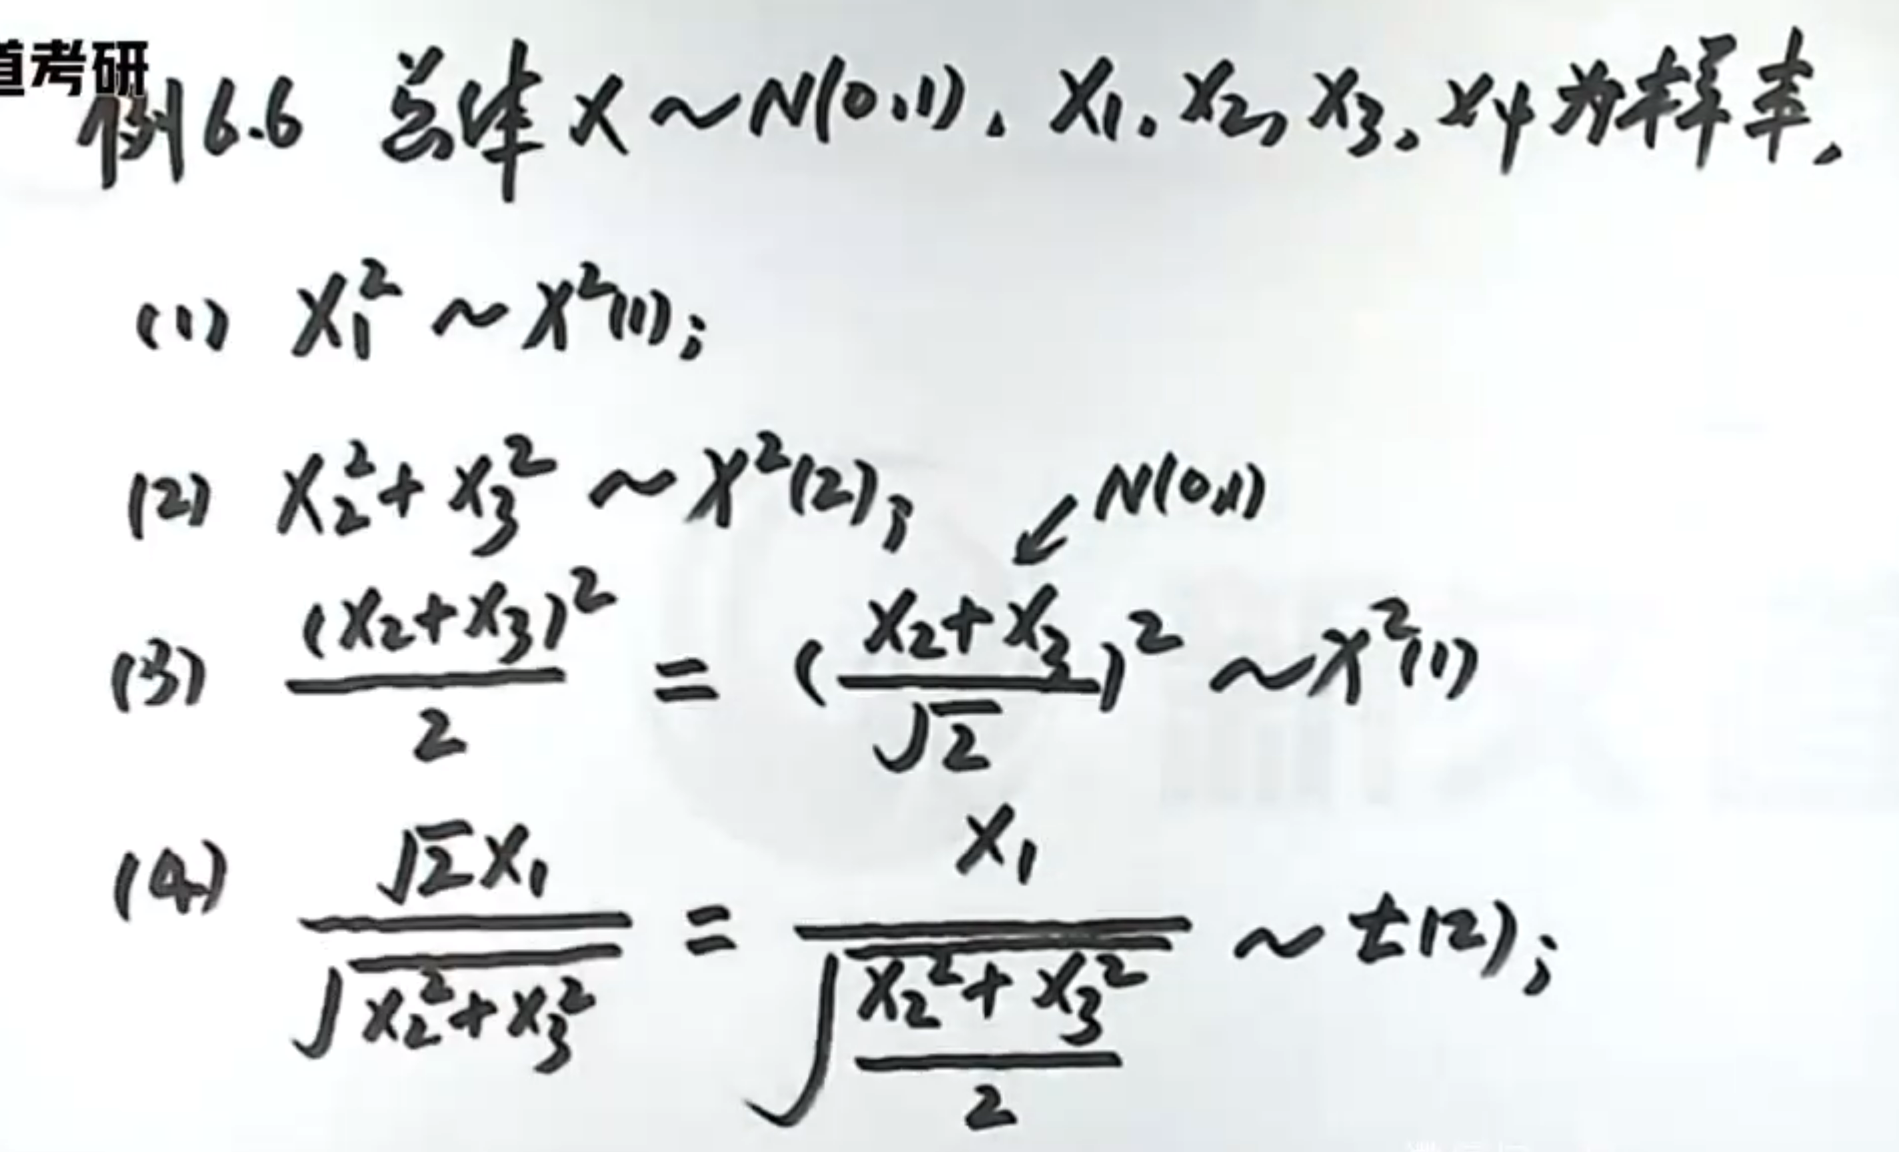 道考研
例6.6 总体 X ~ N(0,1), X₁, X₂, X₃, X₄ 为样本,
(1) X₁² ~ χ²(1);
(2) X₂² + X₃² ~ χ²(2);
N(0,1)
(3) (X₂+X₃)²/2 = ((X₂+X₃)/√2)² ~ χ²(1)
(4) √2X₁/√(X₂²+X₃²) = X₁/√((X₂²+X₃²)/2) ~ t(2);